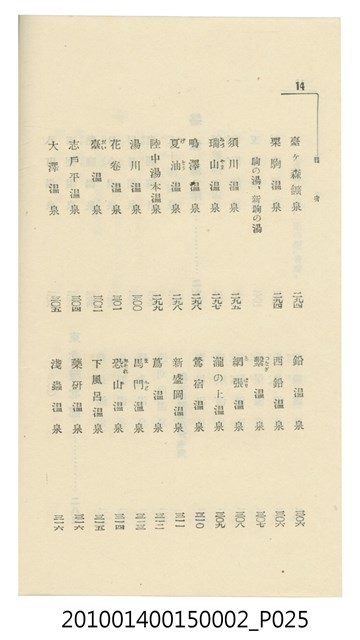 14
目次
臺ヶ森鑛泉 二九四
栗駒溫泉 二九四
駒の湯、新駒の湯
須川溫泉 二九五
瑞山溫泉 二九七
鳴澤溫泉 二九八
夏油溫泉 二九八
陸中湯本溫泉 二九九
湯川溫泉 三〇〇
花卷溫泉 三〇一
臺溫泉 三〇二
志戶平溫泉 三〇四
大澤溫泉 三〇五
鉛溫泉 三〇六
西鉛溫泉 三〇六
繫溫泉 三〇七
網張溫泉 三〇八
瀧の上溫泉 三〇九
鶯宿溫泉 三一〇
新盛岡溫泉 三一一
蔦溫泉 三一二
馬門溫泉 三一三
恐山溫泉 三一四
下風呂溫泉 三一五
藥研溫泉 三一六
淺蟲溫泉 三一六
201001400150002_P025